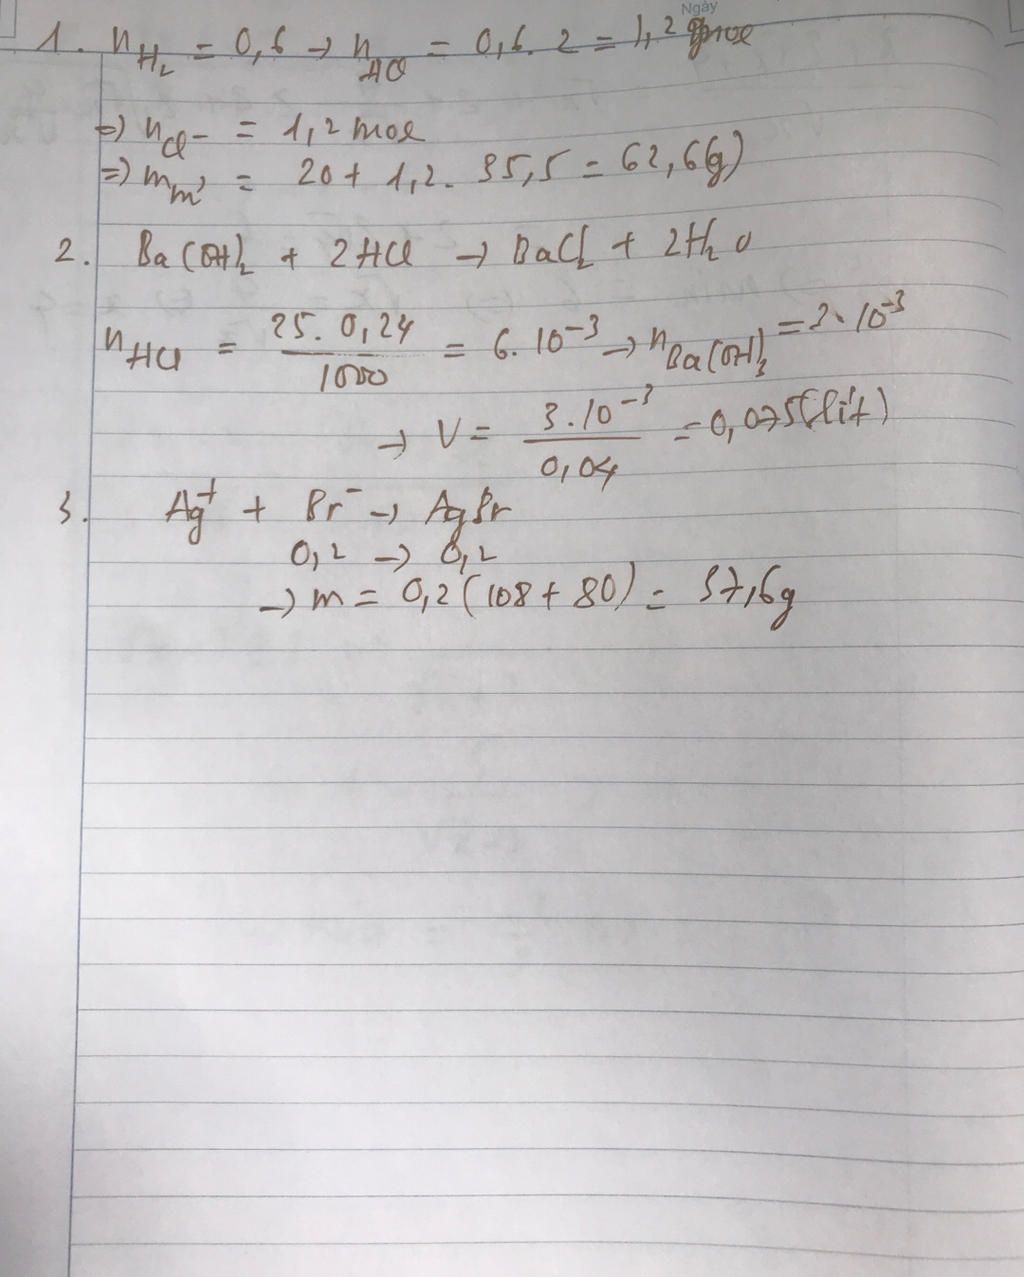 Ngày
1. n_H₂ = 0,6 → n_HCl = 0,6. 2 = 1,2 mol
=) n_Cl⁻ = 1,2 mol
=) m_m' = 20 + 1,2. 35,5 = 62,6(g)
2. Ba(OH)₂ + 2HCl → BaCl₂ + 2H₂O
n_HCl = 25. 0,24 / 1000 = 6. 10⁻³ → n_Ba(OH)₂ = 3. 10⁻³
→ V = 3. 10⁻³ / 0,04 = 0,075(lít)
3. Ag⁺ + Br⁻ → AgBr
0,2 → 0,2
→ m = 0,2(108 + 80) = 37,6g